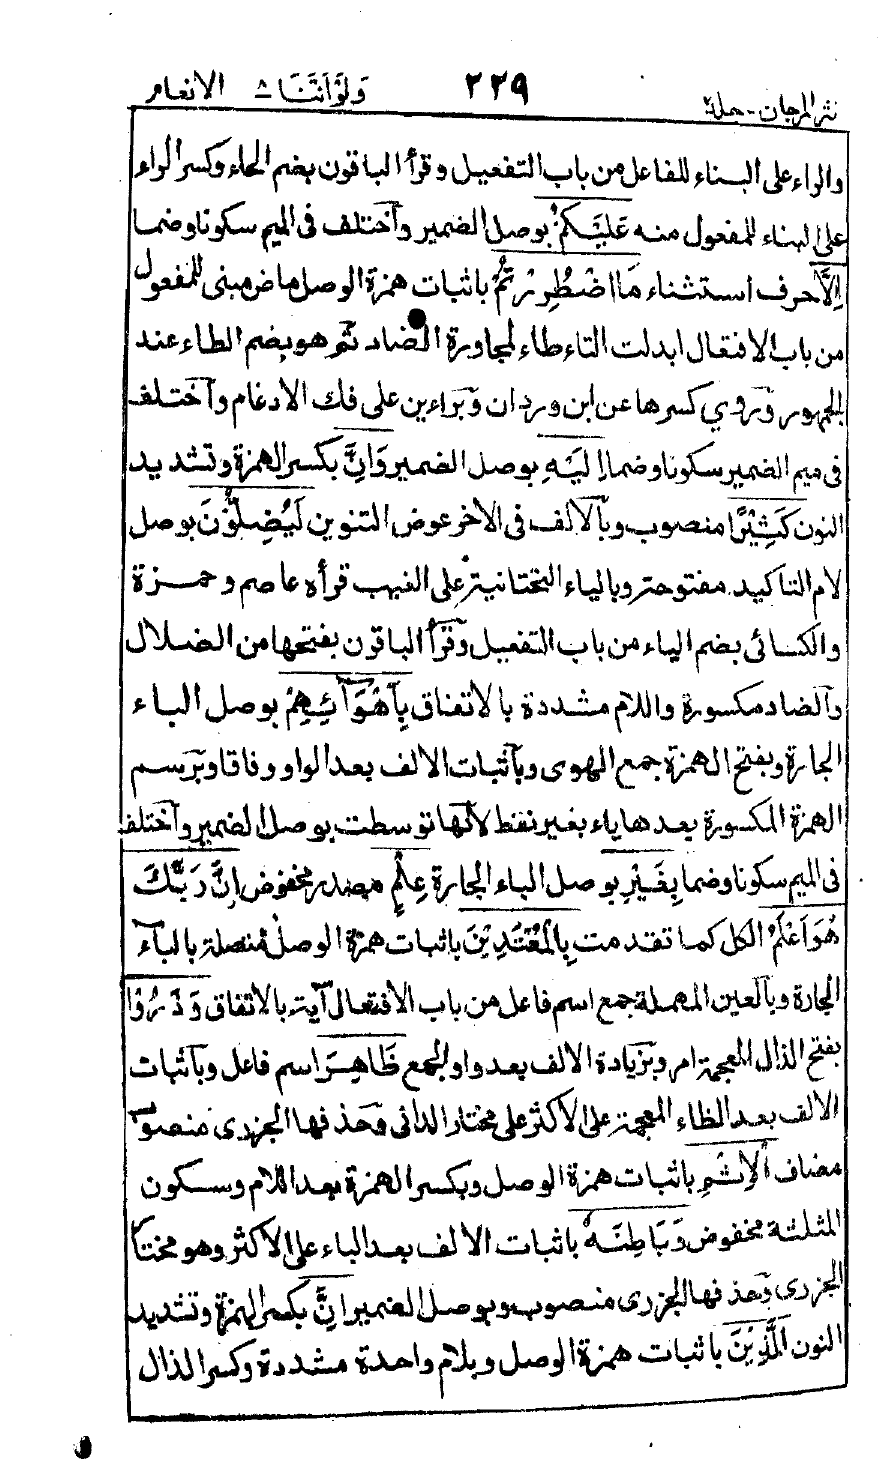 نثر المرجان - جلد٢ ٢٢٩ ولوأننا ٨ الانعام
والراء على البناء للفاعل من باب التفعيل وقرأ الباقون بضم الحاء وكسر الراء
على البناء للمفعول منه عَلَيْكُمْ بوصل الضمير وآختلف فى الميم سكونا وضما
اِلَّا حرف استثناء مَا اضْطُرِرْتُمْ باثبات همزة الوصل ماض مبنى للمفعول
من باب الافتعال ابدلت التاء طاء لمجاورة الضاد ثم هو بضم الطاء عند
الجمهور وَروي كسرها عن ابن وردان وَبراءين على فك الادغام وآختلف
فى ميم الضمير سكونا وضما اِلَيْهِ بوصل الضمير وَاِنَّ بكسر الهمزة وتشديد
النون كَثِيْرًا منصوب وبآلالف فى الاخر عوض التنوين لَيُضِلُّوْنَ بوصل
لام التاكيد مفتوحة وبالياء التحتانية على الغيب قرأه عاصم وحمزة
والكسائى بضم الياء من باب التفعيل وقرأ الباقون بفتحها من الضلال
وآلضاد مكسورة واللام مشددة بالاتفاق بِاَهْوَآئِهِمْ بوصل الباء
الجارة وبفتح الهمزة جمع الهوى وبآثبات الالف بعد الواو وفاقا وبرسم
الهمزة المكسورة بعدها ياء بغير نقط لانها توسطت بوصل الضمير وآختلف
فى الميم سكونا وضما بِغَيْرِ بوصل الباء الجارة عِلْمٍ مصدر مخفوض اِنَّ رَبَّكَ
هُوَ اَعْلَمُ الكل كما تقدمت بِالْمُعْتَدِيْنَ باثبات همزة الوصل متصلة بالباء
الجارة وبآلعين المهملة جمع اسم فاعل من باب الافتعال آية بالاتفاق وَذَرُوْا
بفتح الذال المعجمة امر وبزيادة الالف بعد واو الجمع ظَاهِرَ اسم فاعل وبآثبات
الالف بعد الظاء المعجمة على الاكثر على مختار الدانى وحذفها الجزرى منصوب
مضاف اَلْاِثْمِ باثبات همزة الوصل وبكسر الهمزة بعد اللام وسكون
المثلثة مخفوض وَبَاطِنَهٗ باثبات الالف بعد الباء على الاكثر وهو مختار
الجزرى وحذفها الجزرى منصوب وبوصل الضمير اِنَّ بكسر الهمزة وتشديد
النون الَّذِيْنَ باثبات همزة الوصل وبلام واحدة مشددة وكسر الذال